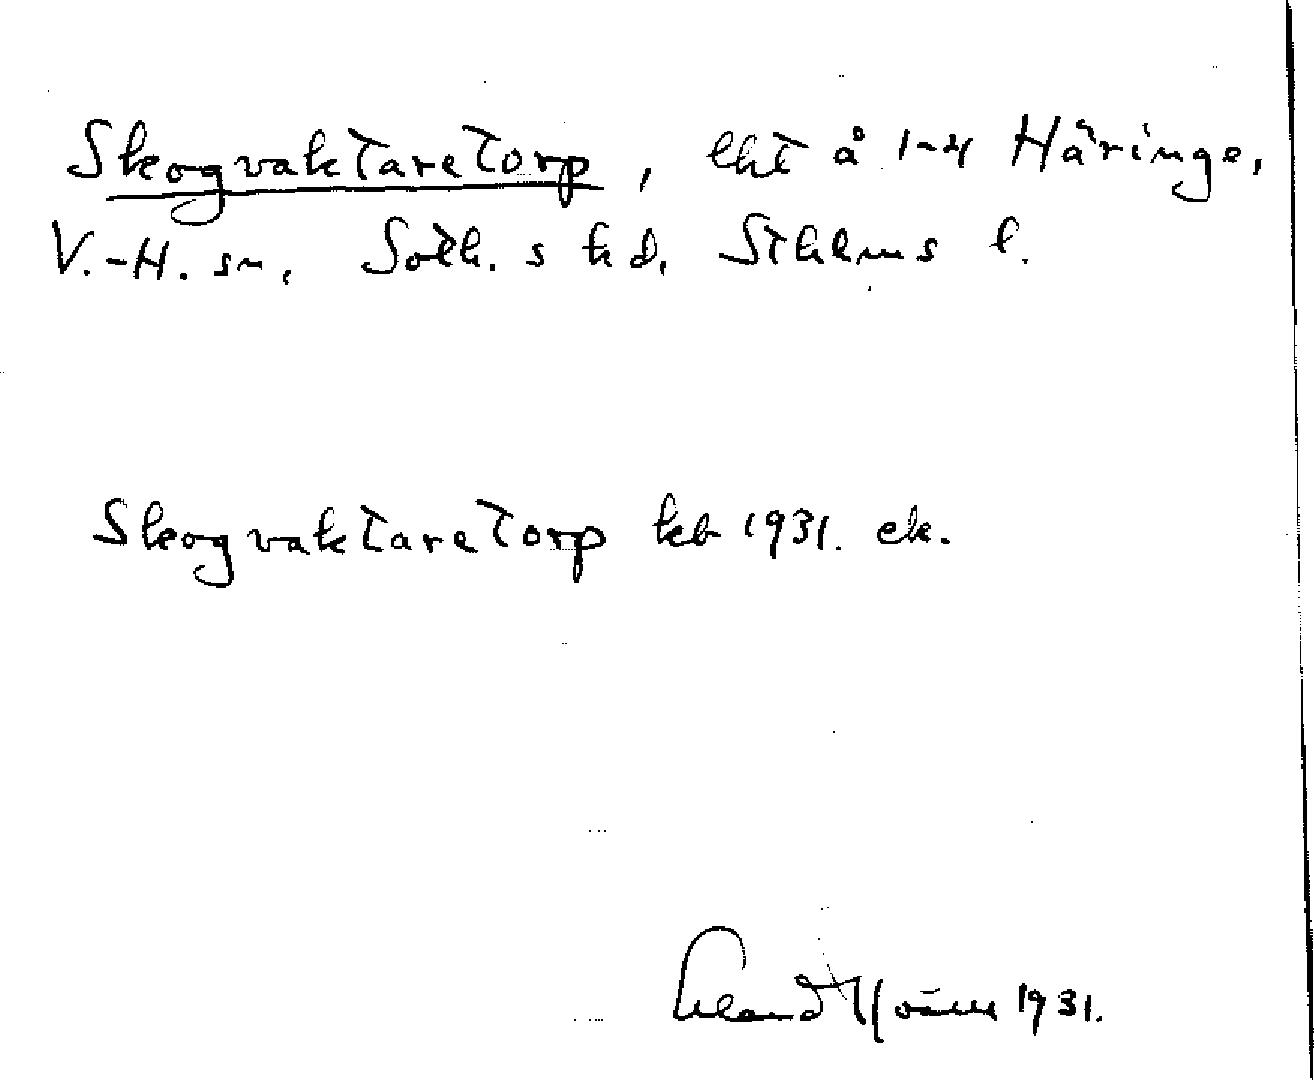 Skogvaktaretorp, lht å 1-4 Häringe,
V.-H. sn, Soth. s hd, Sthlms l.
Skogvaktaretorp kb 1931. ek.
Erland Hjärne 1931.